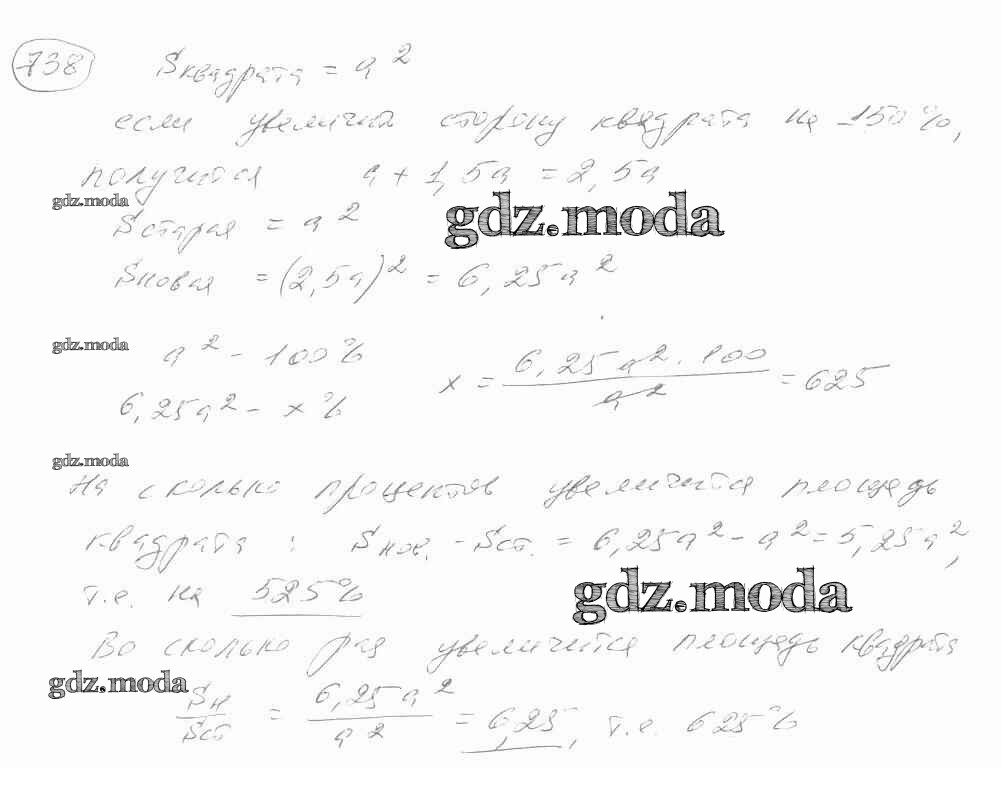 738 Sквадрата = a²
если увеличить сторону квадрата на 150%,
получится a + 1,5a = 2,5a
gdz.moda
gdz.moda
Sстарая = a²
Sновая = (2,5a)² = 6,25a²
gdz.moda
a² - 100%
6,25a² - x%
x = 6,25a² · 100 / a² = 625
gdz.moda
На сколько процентов увеличится площадь
квадрата: Sнов. - Sст. = 6,25a² - a² = 5,25a²,
т.е. на 525%
gdz.moda
Во сколько раз увеличится площадь квадрата
gdz.moda
Sн / Sст = 6,25a² / a² = 6,25, т.е. 625%